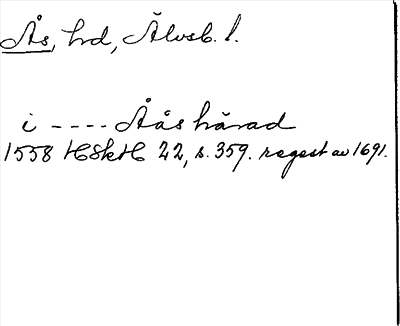 Ås, hrd, Älvsb. l.
i ---- Åås härad
1558 HSkH 22, s. 359. regest av 1691.